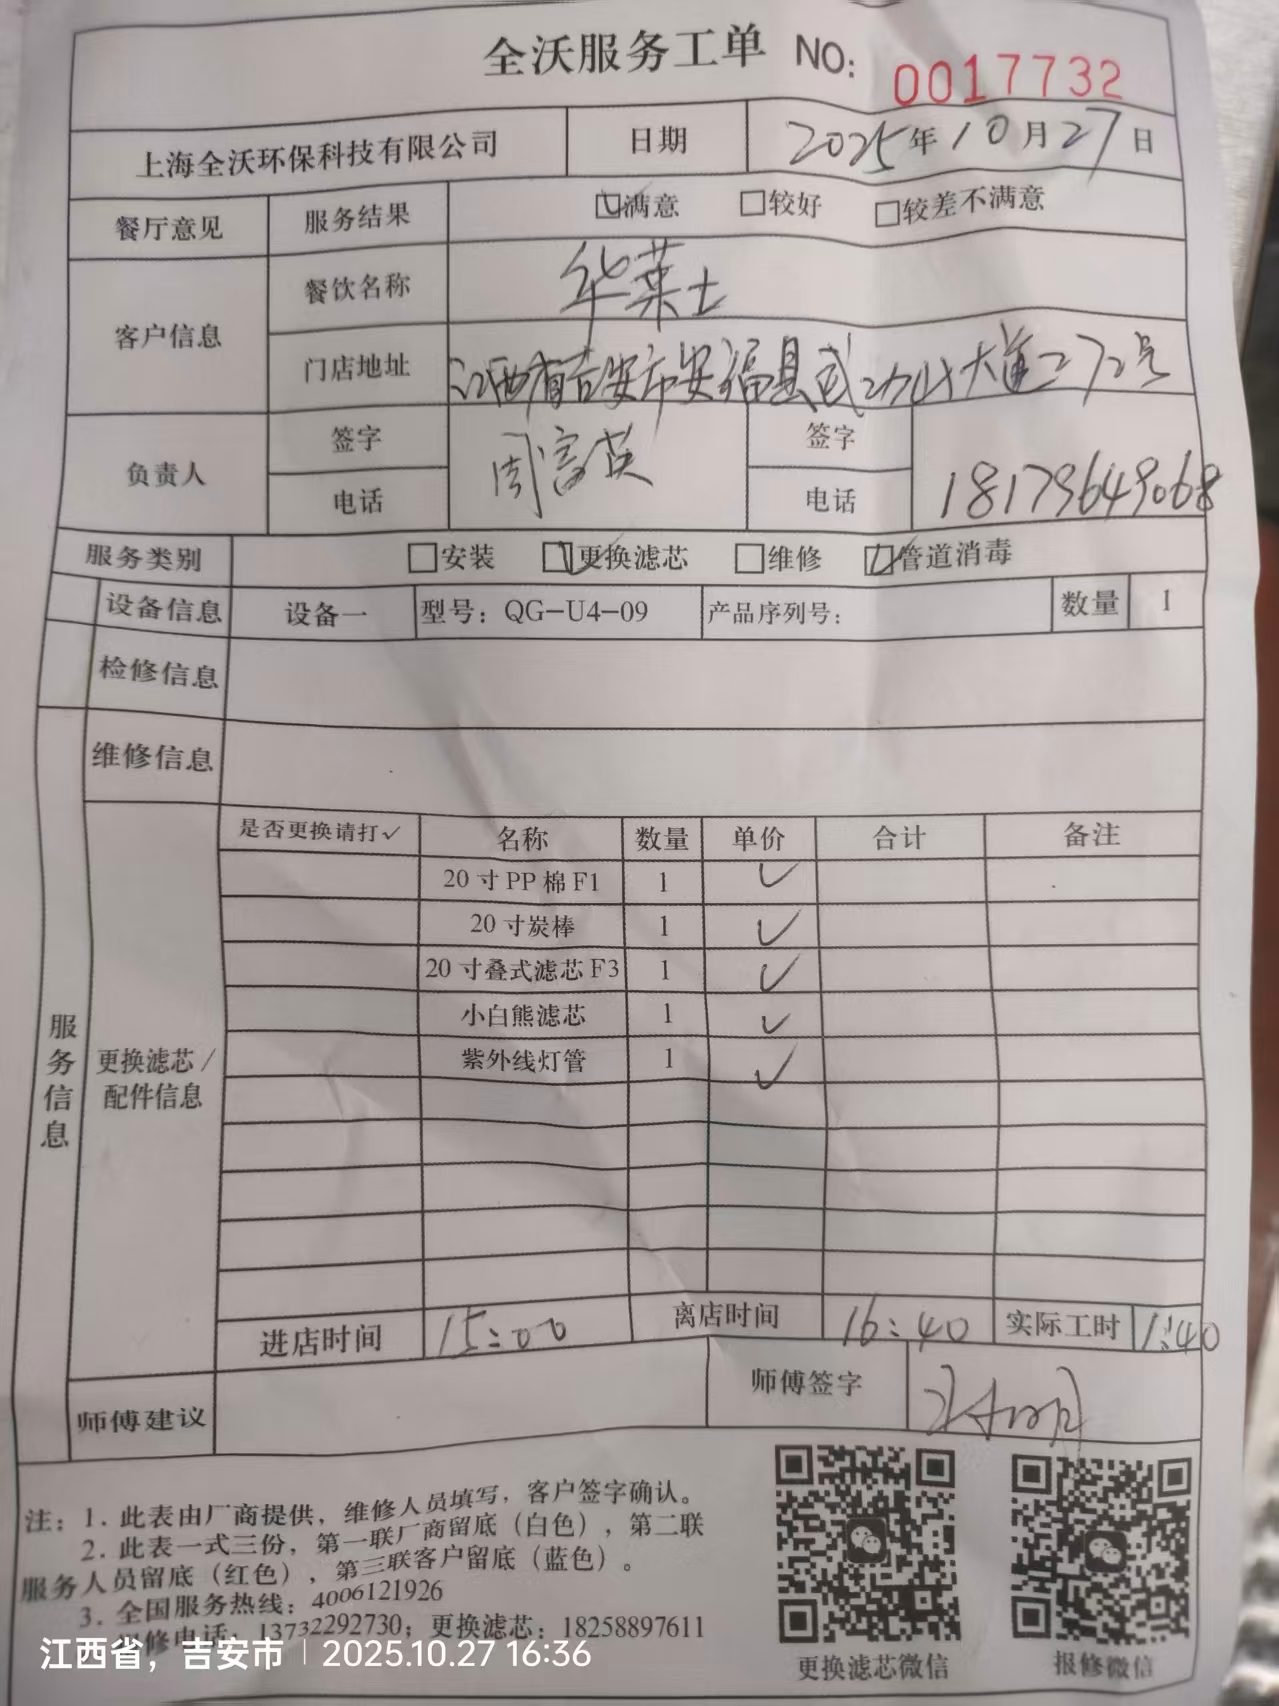 全沃服务工单 NO: 0017732
上海全沃环保科技有限公司 日期 2025年10月27日
餐厅意见 服务结果 ☑满意 □较好 □较差不满意
客户信息 餐饮名称 华莱士
门店地址 江西省吉安市安福县武功山大道272号
负责人 签字 周富英 签字
电话 电话 18179649068
服务类别 □安装 ☑更换滤芯 □维修 ☑管道消毒
设备信息 设备一 型号：QG-U4-09 产品序列号： 数量 1
检修信息
维修信息
服务信息
更换滤芯/配件信息
是否更换请打✓ 名称 数量 单价 合计 备注
20寸PP棉F1 1 ✓
20寸炭棒 1 ✓
20寸叠式滤芯F3 1 ✓
小白熊滤芯 1 ✓
紫外线灯管 1 ✓
进店时间 15:00 离店时间 16:40 实际工时 1:40
师傅建议 师傅签字
注：1. 此表由厂商提供，维修人员填写，客户签字确认。
2. 此表一式三份，第一联厂商留底（白色），第二联
服务人员留底（红色），第三联客户留底（蓝色）。
3. 全国服务热线：4006121926
修电话：13732292730；更换滤芯：18258897611
更换滤芯微信 报修微信
江西省，吉安市 | 2025.10.27 16:36